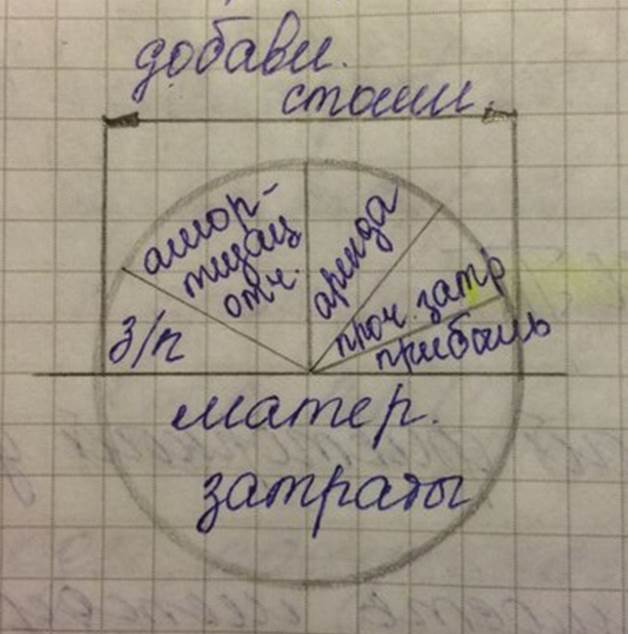 добавл.
стоим.
амор-
тизац
отч.
аренда
проч. затр
прибыль
з/п
матер.
затраты